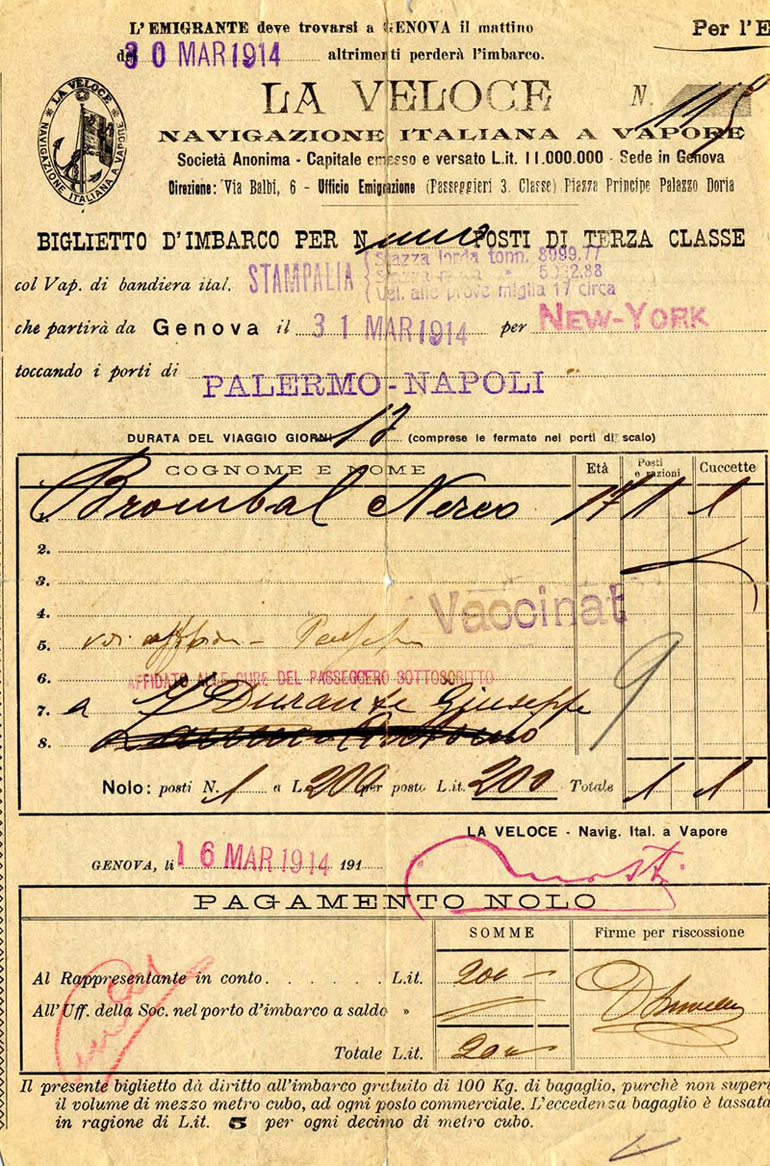 L'EMIGRANTE deve trovarsi a GENOVA il mattino
Per l'E
del 30 MAR 1914 altrimenti perderà l'imbarco.
LA VELOCE
N. 115
LA VELOCE * NAVIGAZIONE ITALIANA A VAPORE *
NAVIGAZIONE ITALIANA A VAPORE
Società Anonima - Capitale emesso e versato L.it. 11.000.000 - Sede in Genova
Direzione: Via Balbi, 6 - Ufficio Emigrazione (Passeggieri 3. Classe) Piazza Principe Palazzo Doria
BIGLIETTO D'IMBARCO PER N. uno POSTI DI TERZA CLASSE
Stazza lorda tonn. 8999.77
col Vap. di bandiera ital. STAMPALIA
Vel. alle prove miglia 17 circa
che partirà da Genova il 31 MAR 1914 per NEW-YORK
toccando i porti di PALERMO-NAPOLI
DURATA DEL VIAGGIO GIORNI 17 (comprese le fermate nei porti di scalo)
COGNOME E NOME Età Posti e razioni Cuccette
1. Brombal Nereo 17 1 1
2.
3.
4. Vaccinat
5.
6. AFFIDATO ALLE CURE DEL PASSEGGERO SOTTOSCRITTO
7. a Durante Giuseppe 9
8.
Nolo: posti N. 1 a L. 200 per posto L.it. 200 Totale 1 1
LA VELOCE - Navig. Ital. a Vapore
GENOVA, li 16 MAR 1914 191
PAGAMENTO NOLO
SOMME Firme per riscossione
Al Rappresentante in conto . . . . . . L.it. 200
All'Uff. della Soc. nel porto d'imbarco a saldo »
Totale L.it. 200
Il presente biglietto dà diritto all'imbarco gratuito di 100 Kg. di bagaglio, purchè non superi
il volume di mezzo metro cubo, ad ogni posto commerciale. L'eccedenza bagaglio è tassata
in ragione di L.it. 5 per ogni decimo di metro cubo.